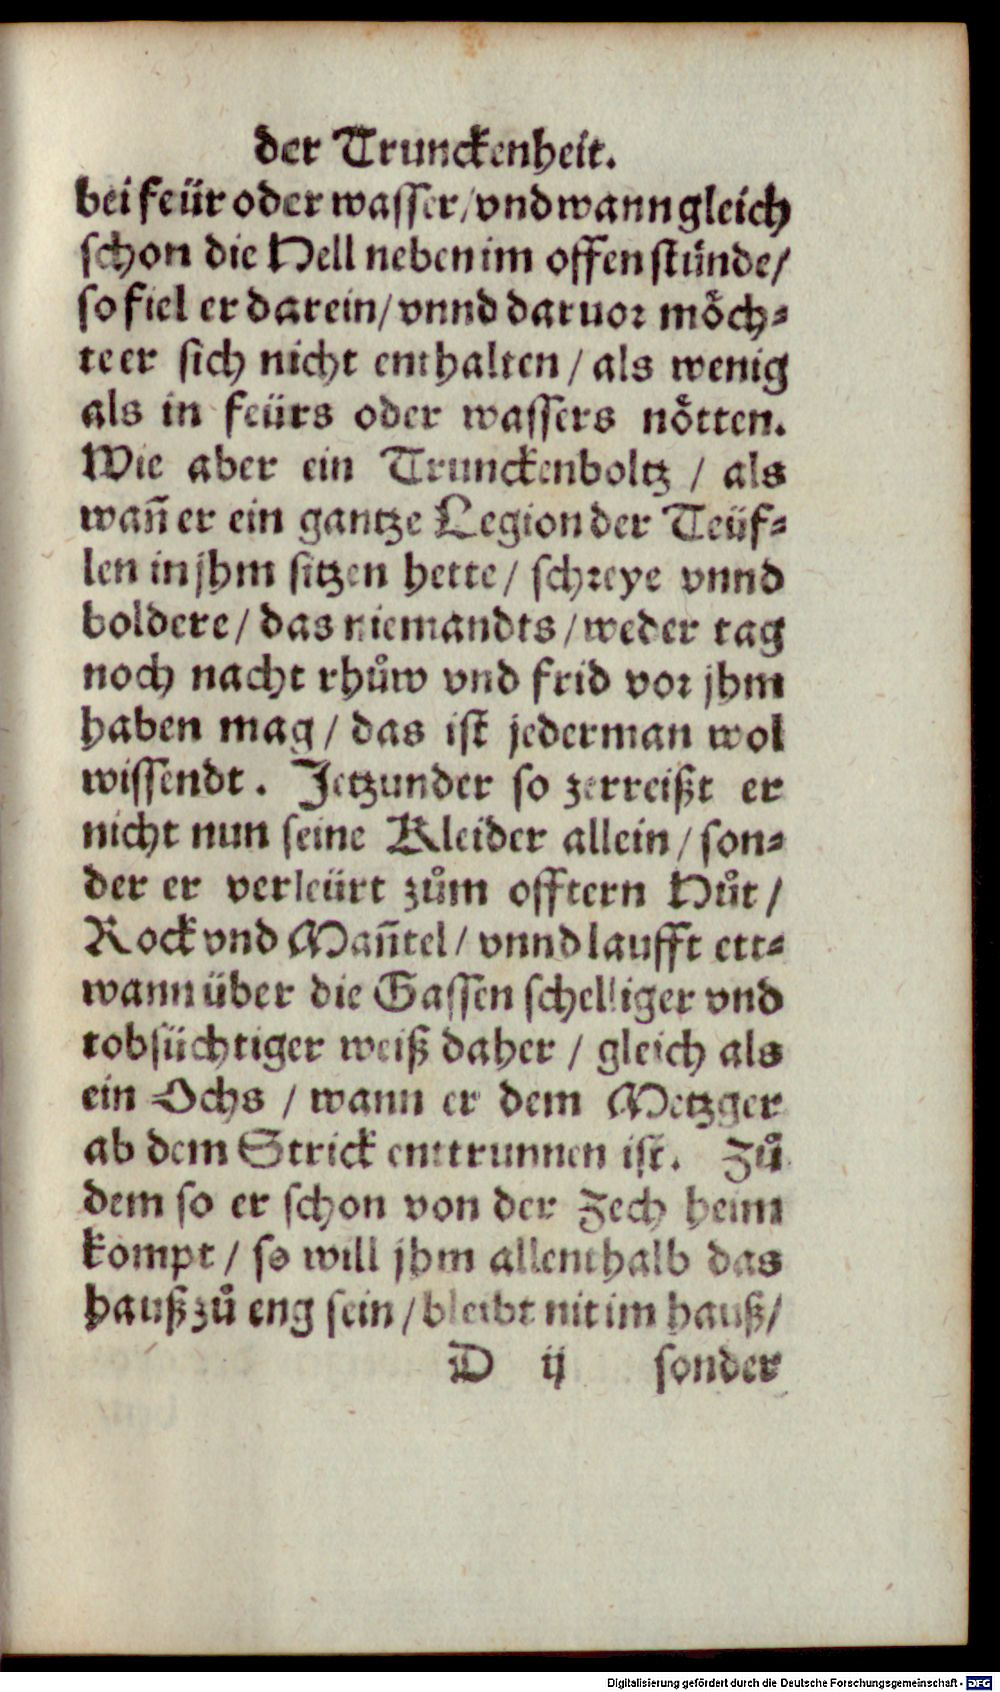 der Trunckenheit.
bei feür oder wasser/ vnd wann gleich
schon die Hell neben im offen stünde/
so fiel er darein/ vnnd daruor möch⸗
te er sich nicht enthalten / als wenig
als in feürs oder wassers nötten.
Wie aber ein Trunckenboltz / als
wañ er ein gantze Legion der Teüf⸗
len in jhm sitzen hette / schreye vnnd
boldere / das niemandts / weder tag
noch nacht rhůw vnd frid vor jhm
haben mag / das ist jederman wol
wissendt. Jetzunder so zerreißt er
nicht nun seine Kleider allein / son⸗
der er verleürt zům offtern Hůt /
Rock vnd Mañtel / vnnd laufft ett⸗
wann über die Gassen schelliger vnd
tobsüchtiger weiß daher / gleich als
ein Ochs / wann er dem Metzger
ab dem Strick enttrunnen ist. Zů
dem so er schon von der Zech heim
kompt / so will jhm allenthalb das
hauß zů eng sein / bleibt nit im hauß /
D ij sonder
Digitalisierung gefördert durch die Deutsche Forschungsgemeinschaft - DFG